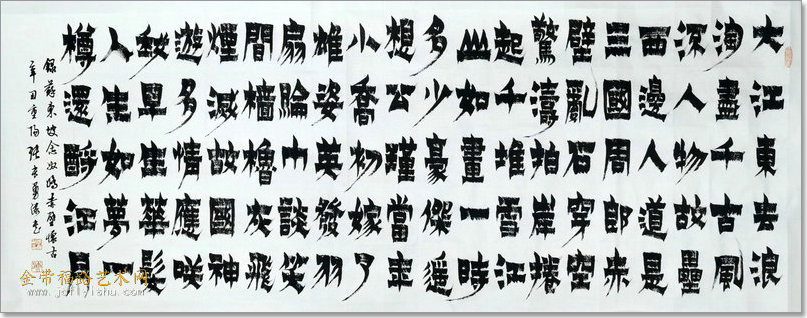 大江東去浪
淘盡千古風
流人物故壘
西邊人道是
三國周郎赤
壁亂石穿空
驚濤拍岸捲
起千堆雪江
山如畫一時
多少豪傑遥
想公瑾當年
小喬初嫁了
雄姿英發羽
扇綸巾談笑
間檣櫓灰飛
煙滅故國神
遊多情應咲
我早生華髮
人生如夢一
樽還酹江月
録蘇東坡念奴嬌赤壁懷古
辛丑重陽
金带福路艺术网
www.jdflyishu.com